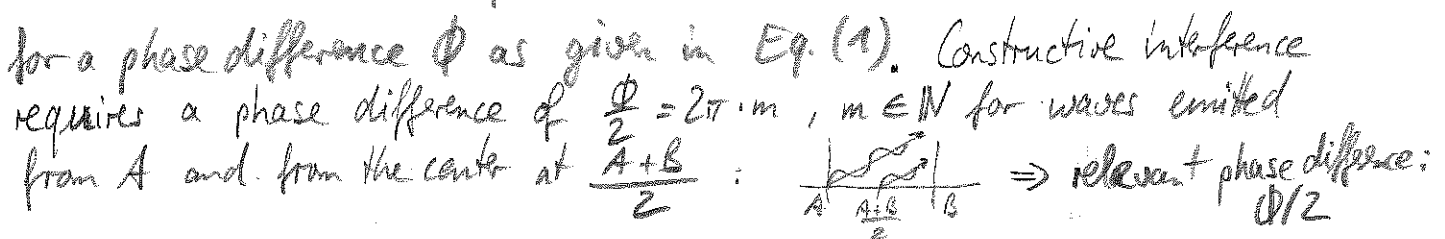 for a phase difference Φ as given in Eq. (1). Constructive interference
requires a phase difference of Φ/2 = 2π · m , m ∈ ℕ for waves emitted
from A and from the center at (A+B)/2 : A (A+B)/2 B ⇒ relevant phase difference:
Φ/2